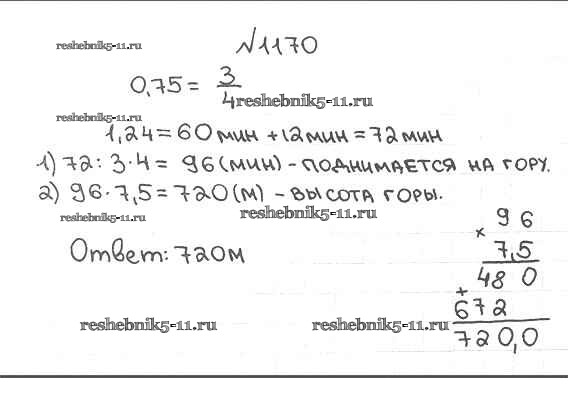 №1170
reshebnik5-11.ru
0,75 = 3/4
reshebnik5-11.ru
reshebnik5-11.ru
1,2ч = 60 мин + 12 мин = 72 мин
1) 72 : 3 · 4 = 96 (мин) - поднимается на гору.
2) 96 · 7,5 = 720 (м) - высота горы.
reshebnik5-11.ru
reshebnik5-11.ru
Ответ: 720м
96
×
7,5
480
+
672
720,0
reshebnik5-11.ru
reshebnik5-11.ru